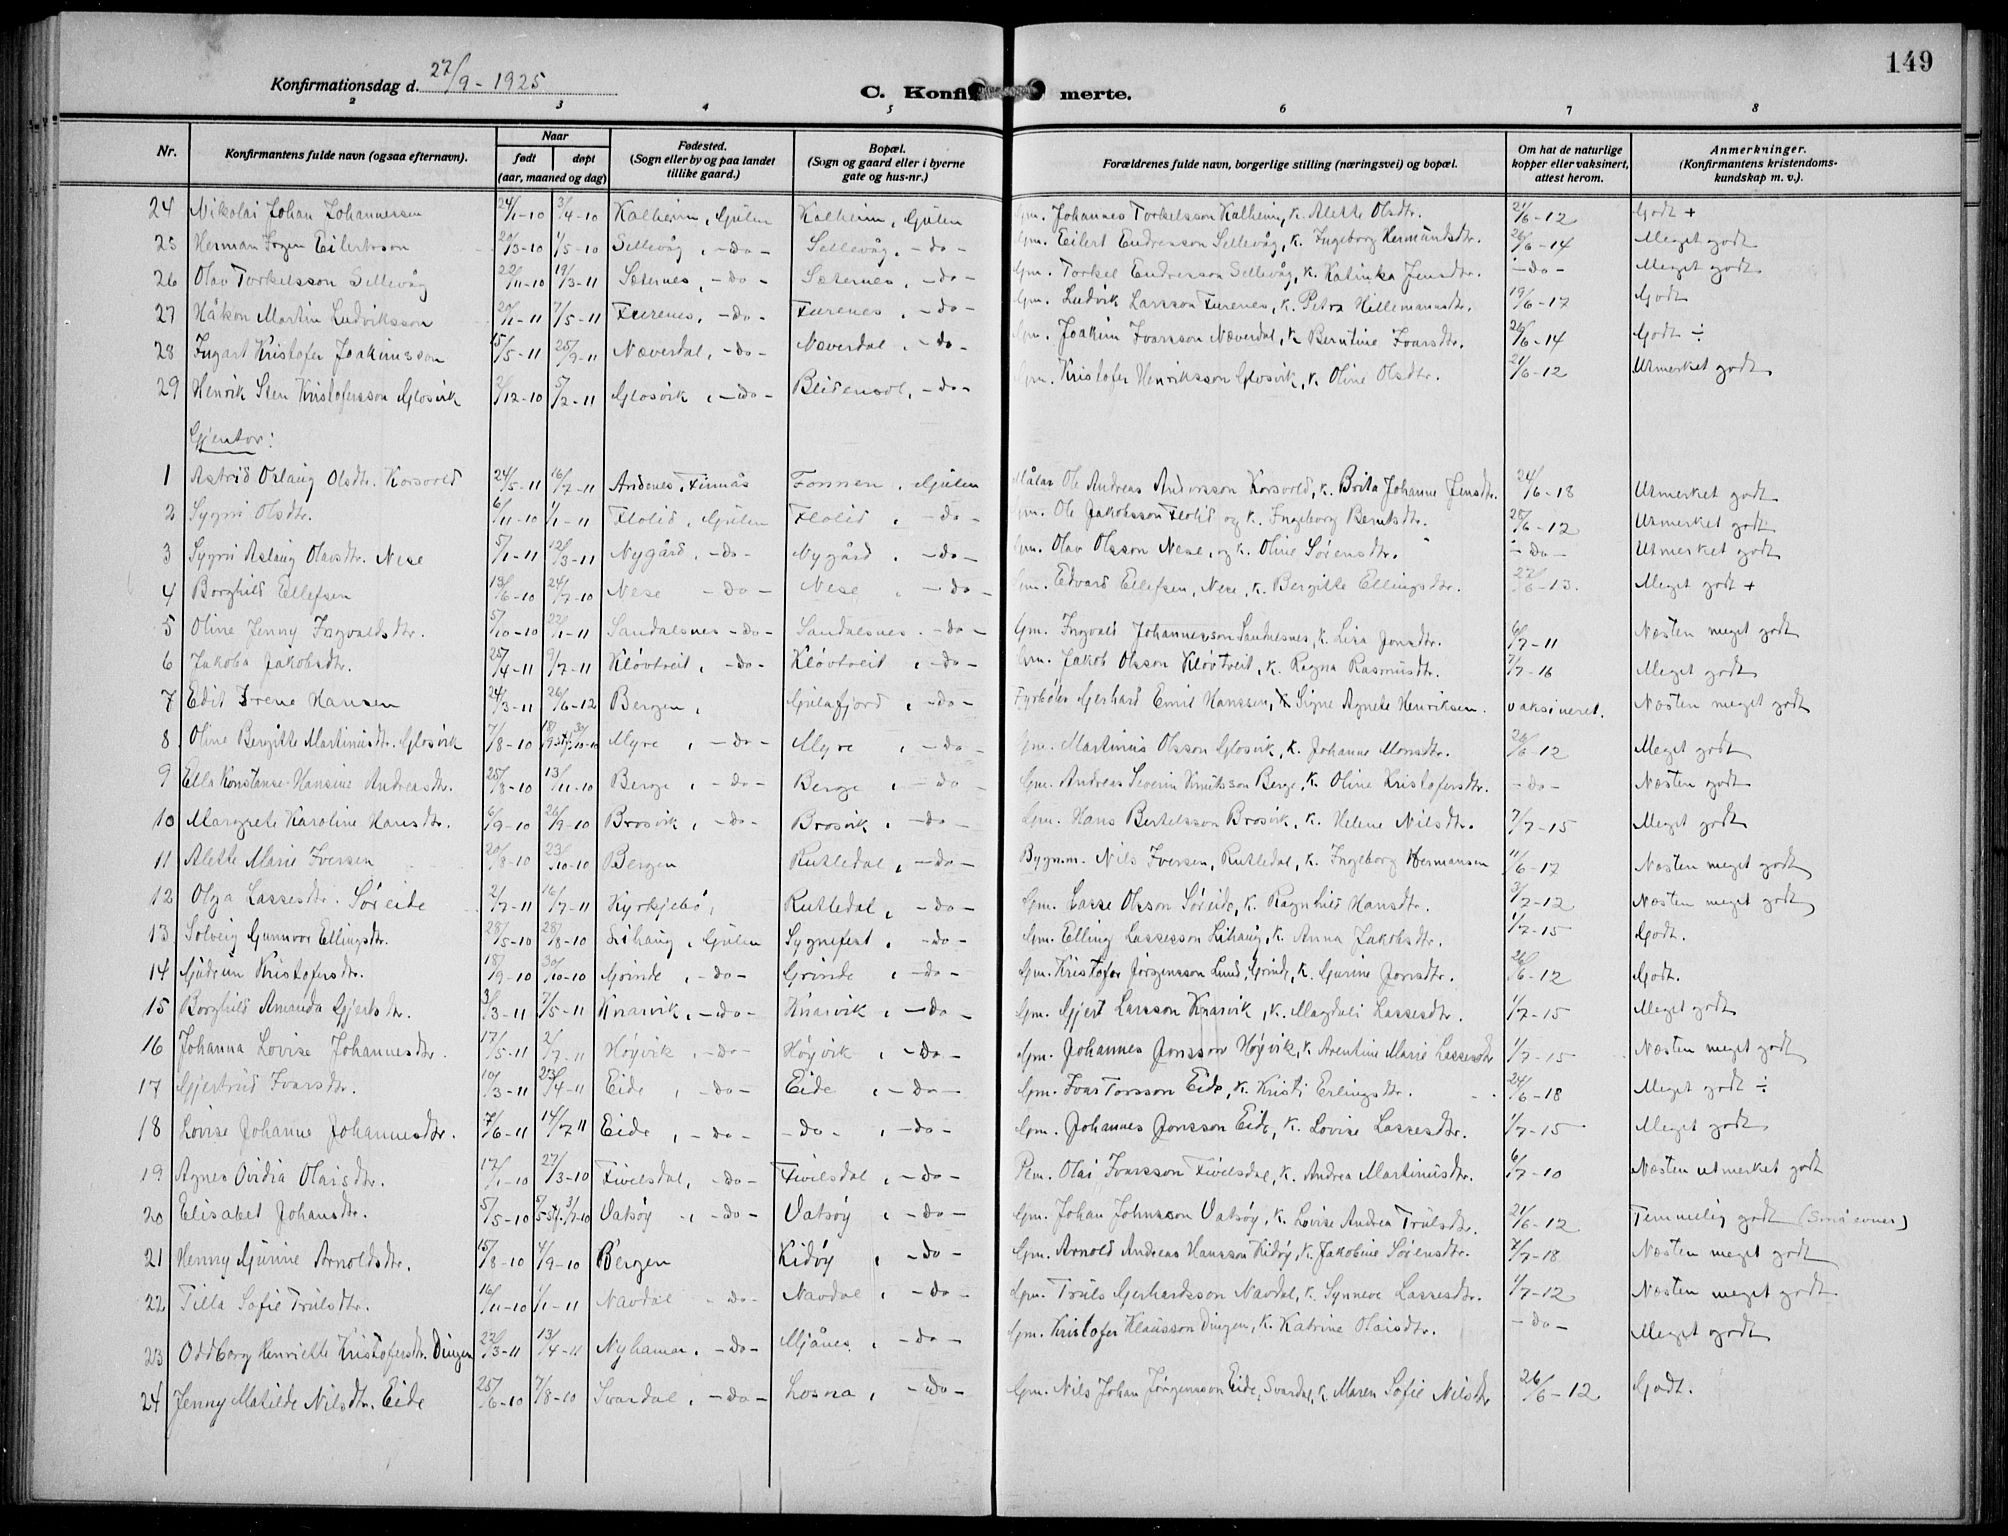 149
Konfirmationsdag d. 27/9 - 1925
C. Konfirmerte.
2 3 4 5 6 7 8
Nr. Konfirmantens fulde navn (ogsaa efternavn). Naar født døpt (aar, maaned og dag) Fødested. (Sogn eller by og paa landet tillike gaard.) Bopæl. (Sogn og gaard eller i byerne gate og hus-nr.) Forældrenes fulde navn, borgerlige stilling (næringsvei) og bopæl. Om hat de naturlige kopper eller vaksinert, attest herom. Anmerkninger. (Konfirmantens kristendoms-kundskap m. v.).
24 Nikolai Johan Johannessen 24/1-10 3/4-10 Kalheim, Gulen Kalheim, Gulen Gm. Johannes Torkelsson Kalheim, K. Alette Olsdtr. 21/6-12 Godt +
25 Herman Eilertsson 20/3-10 1/5-10 Sellevåg, -do- Sellevåg, -do- Gm. Eilert Endresson Sellevåg, K. Ingeborg Hermundsdtr. 26/6-14 Meget godt
26 Olav Torkelsson Sellevåg 22/11-10 19/3-11 Sæternes, -do- Sæternes, -do- Gm. Torkel Endresson Sellevåg, K. Katinka Jensdtr. -do- Meget godt
27 Håkon Martin Ludviksson 20/1-11 7/5-11 Furenes, -do- Furenes, -do- Gm. Ludvik Larsson Furenes, K. Petra Hillemannsdtr. 19/6-17 Godt
28 Ingart Kristofer Joakimsson 15/5-11 25/9-11 Næverdal, -do- Næverdal, -do- Gm. Joakim Ivarsson Næverdal, K. Berntine Ivarsdtr. 26/6-14 Godt ÷
29 Henrik Sten Kristofersson Glosvik 2/12-10 5/2-11 Glosvik, -do- Blidensol, -do- Gm. Kristofer Henriksson Glosvik, K. Oline Olsdtr. 21/6-12 Utmerket godt
Gjentor:
1 Astrid Oslaug Olsdtr. Korsvold 24/5-11 16/7-11 Andenes, Finnås Fonnen, Gulen Målar Ole Andreas Andersson Korsvold, K. Brita Johanne Jensdtr. 24/6-18 Utmerket godt
2 Sygni Olsdtr. 6/11-10 1/1-11 Flolid, Gulen Flolid, -do- Gm. Ole Jakobsson Flolid og K. Ingeborg Berntsdtr. 25/6-12 Utmerket godt
3 Sygni Aslaug Olavsdtr. Nese 5/1-11 12/3-11 Nygård, -do- Nygård, -do- Gm. Olav Olsson Nese, og K. Oline Sørensdtr. -do- Utmerket godt
4 Borghild Ellefsen 13/6-10 24/7-10 Nese -do- Nese, -do- Gm. Edvard Ellefsen, Nese, K. Bergitte Ellingsdtr. 27/6-13. Meget godt +
5 Oline Jenny Ingvaldsdtr. 5/10-10 22/1-11 Sandalsnes -do- Sandalsnes. -do- Gm. Ingvald Johannesson Sandalsnes, K. Lisa Jonsdtr. 6/7-11 Næsten meget godt
6 Jakoba Jakobsdtr. 25/4-11 9/7-11 Kløvtveit, -do- Kløvtveit, -do- Gm. Jakob Olsson Kløvtveit, K. Ragna Rasmusdtr. 7/7-16 Meget godt
7 Edit Irene Hansen 24/3-11 26/6-12 Bergen, Gulafjord, -do- Fyrbøter Gerhard Emil Hanssen, K Signe Agnete Henriksen. vaksineret. Næsten meget godt
8 Oline Bergitte Martinusdtr. Glosvik 7/8-10 Myre, -do- Myre, -do- Gm. Martinus Olsson Glosvik, K. Johanne Monsdtr. 26/6-12 Meget godt
9 Ella Konstanse Hansine Andreasdtr. 25/8-10 13/11-10 Berge, -do- Berge, -do- Gm. Andreas Severin Knutsson Berge, K. Oline Kristofersdtr. -do- Næsten godt
10 Margrete Karoline Hansdtr. 6/9-10 26/9-10 Brosvik, -do- Brosvik, -do- Gm. Hans Bertelsson Brosvik, K. Helene Nilsdtr. 7/7-15 Meget godt
11 Alette Marie Iversen 20/8-10 23/10-10 Bergen Rutledal, -do- Bygnm. Nils Iversen, Rutledal, K. Ingeborg Hermansen 11/6-17 Næsten meget godt
12 Olga Lassesdtr. Søreide 2/7-11 16/7-11 Kyrkjebø, Rutledal, -do- Gm. Lasse Olsson Søreide, K. Ragnhild Hansdtr. 3/7-12 Næsten meget godt
13 Solveig Gunnvor Ellingsdtr. 28/5-10 28/8-10 Lihaug, Gulen Sygnefest, -do- Gm. Elling Lassesson Lihaug, K. Anna Jakobsdtr. 1/7-15 Godt.
14 Gudrun Kristofersdtr. 18/9-10 30/10-10 Grinde, -do- Grinde, -do- Gm. Kristofer Jørgensson Lund, Grinde, K. Gurine Jonsdtr. 26/6-12 Godt.
15 Borghild Amanda Gjertsdtr. 3/3-11 7/5-11 Knarvik, -do- Knarvik, -do- Gm. Gjert Larsson Knarvik, K. Magdeli Lassesdtr. 1/7-15 Meget godt
16 Johanna Lovise Johannesdtr. 17/5-11 2/7-11 Høyvik, -do- Høyvik, -do- Gm. Johannes Jonsson Høyvik, K. Arentine Marie Lassesdtr 1/7-15 Næsten meget godt
17 Gjertrud Ivarsdtr. 10/3-11 23/4-11 Eide, -do- Eide, -do- Gm. Ivar Torsson Eide, K. Kristi Erlingsdtr. 24/6-18 Meget godt ÷
18 Lovise Johanne Johannesdtr. 7/6-11 14/7 11 Eide, -do- -do-, -do- Gm. Johannes Jonsson Eide, K. Lovise Lassesdtr. 1/7-15 Meget godt
19 Agnes Ovidia Olaisdtr. 17/1-10 27/3-10 Fivelsdal, -do- Fivilsdal, -do- Pm. Olai Ivarsson Fivelsdal, K. Andrea Martinusdtr. 6/7-10 Næsten utmerket godt
20 Elisabet Johansdtr. 5/5-10 Vatsøy, -do- Vatsøy, -do- Gm. Johan Johnsson Vatsøy, K. Lovise Andrea Trulsdtr. 21/6-12 Temmelig godt (Små evner)
21 Henny Gurine Arnoldsdtr. 15/8-10 4/9-10 Bergen Kidøy, -do- Gm. Arnold Andreas Hansson Kidøy, K. Jakobine Sørensdtr. 7/7-18 Næsten meget godt
22 Tilla Sofie Trulsdtr. 16/11-10 1/1-11 Navdal -do- Navdal, -do- Gm. Truls Gerhardsson Navdal, K. Synneve Lassesdtr. 1/7-12 Næsten meget godt
23 Oddborg Henriette Kristofersdtr. Dingen 22/3-11 13/4-11 Nyhamar, -do- Mjånes, -do- Gm. Kristofer Klausson Dingen, K. Katrine Olaisdtr. -do- Meget godt
24 Jenny Matilde Nilsdtr. Eide 25/6-10 7/8-10 Svardal, -do- Losna, -do- Gm. Nils Johan Jørgensson Eide, Svardal, K. Maren Sofie Nilsdtr 26/6-12 Godt.